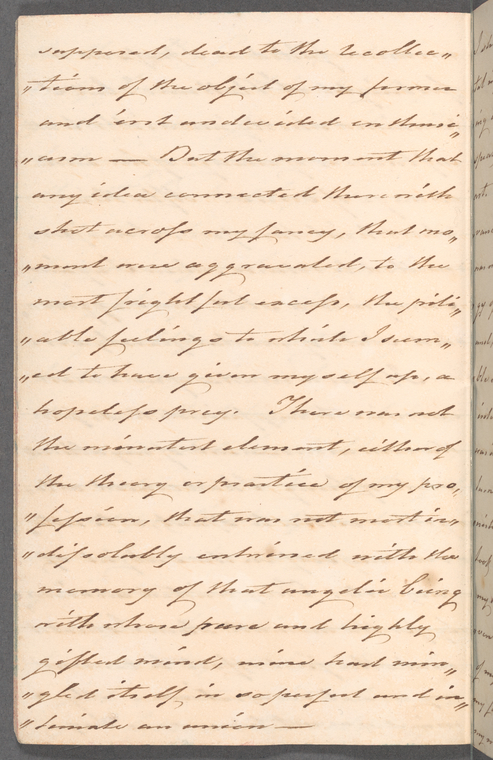 supposed, dead to the recollec„
„tions of the object of my former
and erst undecided enthusi„
„asm — But the moment that
any idea connected therewith
shot across my fancy, that mo„
„ment were aggravated, to the
most frightful excess, the piti„
„able feelings to which I seem„
„ed to have given myself up, a
hopeless prey. There was not
the minutest element, either of
the theory or practice of my pro„
„fession, that was not most in„
„dissolubly entwined with the
memory of that angelic being
with whose pure and highly
gifted mind, mine had min„
„gled itself in so perfect and in„
„timate an union —